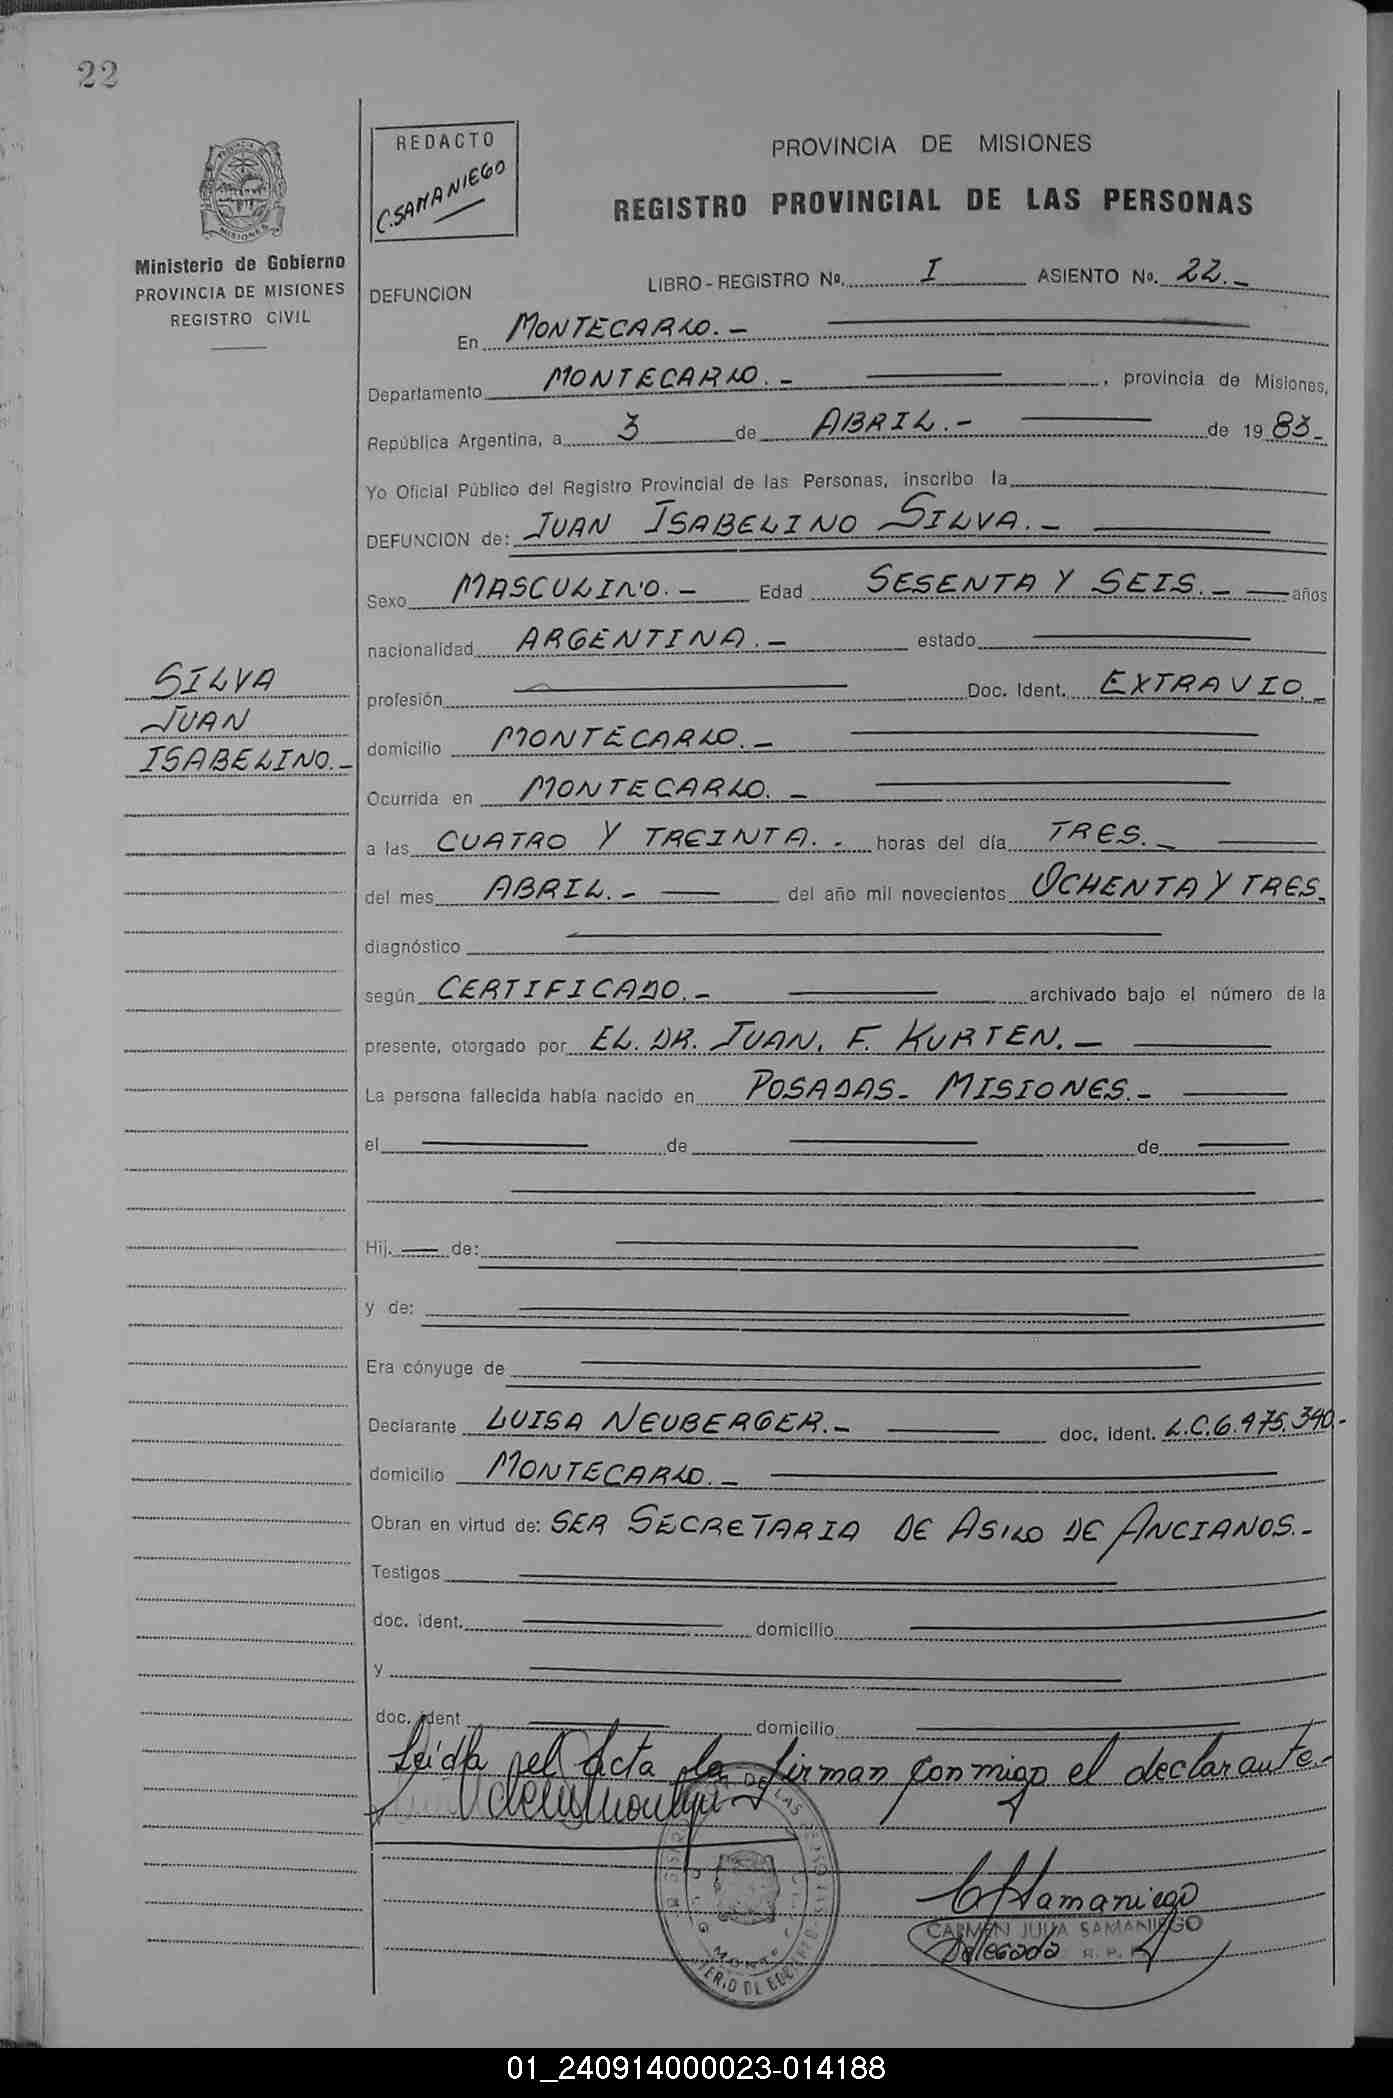 22
REDACTO
C. SAMANIEGO
PROVINCIA DE MISIONES
REGISTRO PROVINCIAL DE LAS PERSONAS
Ministerio de Gobierno
PROVINCIA DE MISIONES
REGISTRO CIVIL
DEFUNCION LIBRO-REGISTRO No. I ASIENTO No. 22.-
En MONTECARLO.-
Departamento MONTECARLO.- , provincia de Misiones,
República Argentina, a 3 de ABRIL.- de 1983-
Yo Oficial Público del Registro Provincial de las Personas, inscribo la
DEFUNCION de: JUAN ISABELINO SILVA.-
Sexo MASCULINO.- Edad SESENTA Y SEIS.- años
nacionalidad ARGENTINA.- estado
SILVA
JUAN
ISABELINO.-
profesión Doc. Ident. EXTRAVIO.-
domicilio MONTECARLO.-
Ocurrida en MONTECARLO.-
a las CUATRO Y TREINTA.- horas del día TRES.-
del mes ABRIL.- del año mil novecientos OCHENTA Y TRES.
diagnóstico
según CERTIFICADO.- archivado bajo el número de la
presente, otorgado por EL. DR. JUAN. F. KURTEN.-
La persona fallecida había nacido en POSADAS- MISIONES.-
el de de
Hij. de:
y de:
Era cónyuge de
Declarante LUISA NEUBERGER.- doc. ident. L.C.6.975.340.-
domicilio MONTECARLO.-
Obran en virtud de: SER SECRETARIA DE ASILO DE ANCIANOS.-
Testigos
doc. ident. domicilio
y
doc. ident domicilio
Leida el Acta la firman conmigo el declarante.-
CSamaniego
CARMEN JULIA SAMANIEGO
Delegada R. P.
01_240914000023-014188